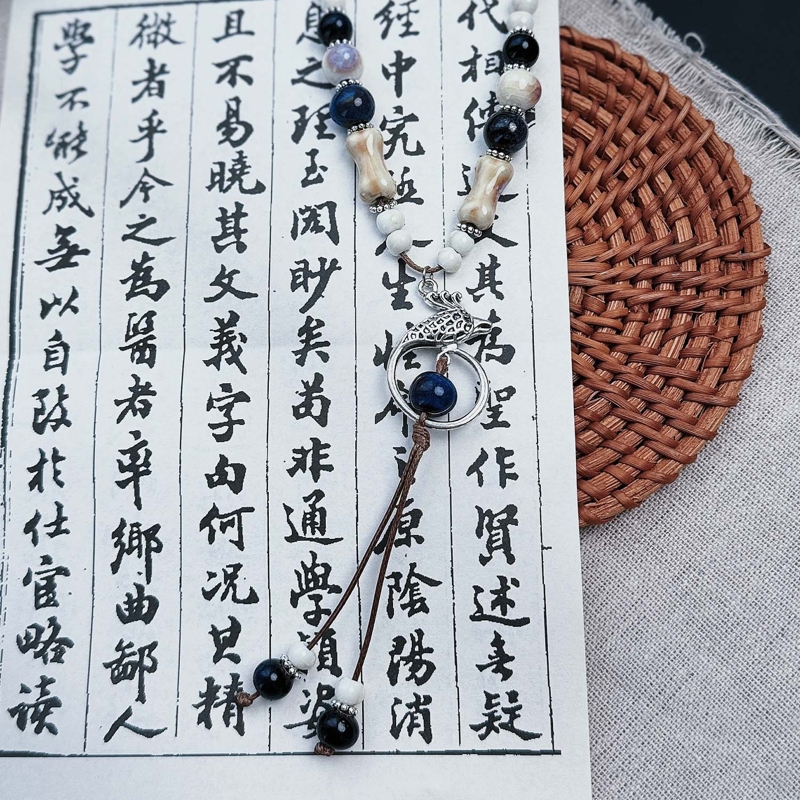 代相傳文其為聖作賢述疑
經中究極人生性原陰陽消
息之理至閎眇矣苟非通學穎姿
且不易曉其文義字句何況其精
微者乎今之為醫者率鄉曲鄙人
學不能成無以自致於仕宦略读